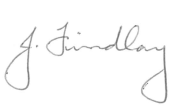 J. Findlay